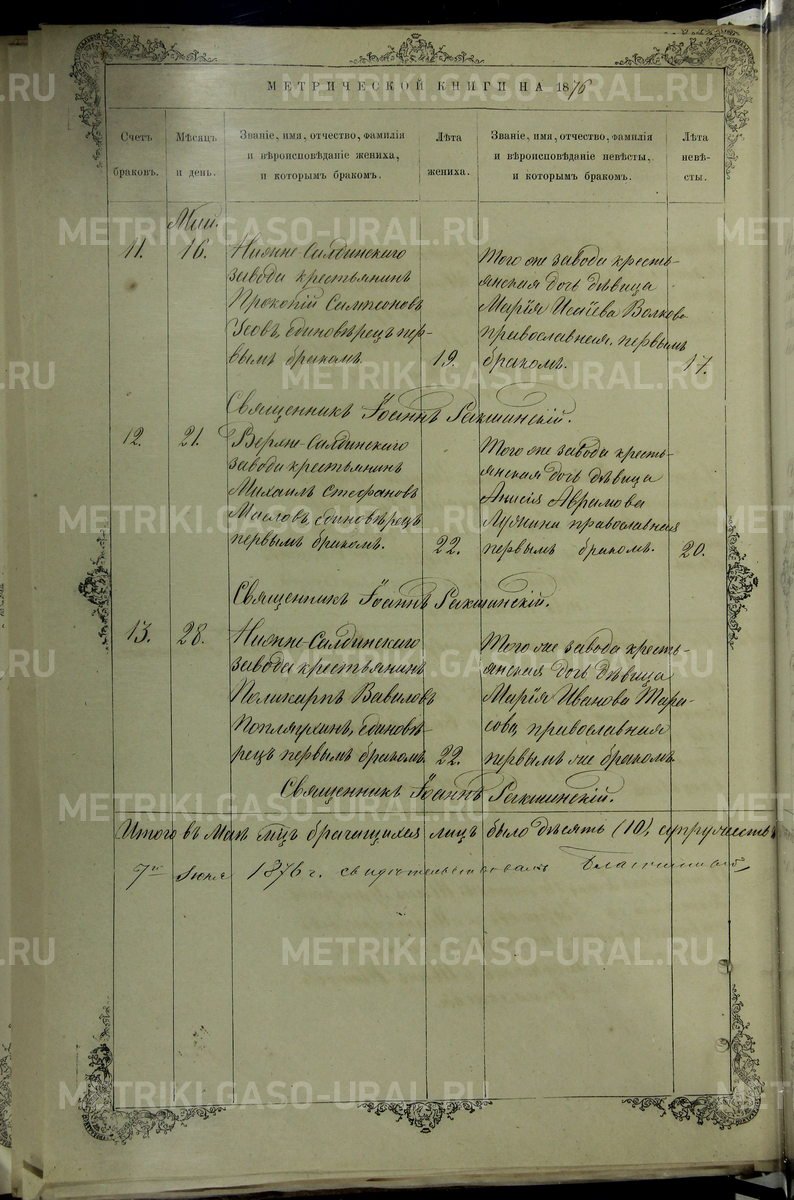 МЕТРИЧЕСКОЙ КНИГИ НА 1876
Счетъ браковъ.
Мѣсяцъ и день.
Званіе, имя, отчество, фамилія и вѣроисповѣданіе жениха, и которымъ бракомъ.
Лѣта жениха.
Званіе, имя, отчество, фамилія и вѣроисповѣданіе невѣсты, и которымъ бракомъ.
Лѣта невѣсты.
Май.
11. 16.
Нижне-Салдинскаго
завода крестьянинъ
Прокопій Симпсоновъ
Усовъ, единовѣрецъ пер-
вымъ бракомъ. 19.
Того же завода кресть-
янская дочь дѣвица
Марія Исаіева Волкова
православная, первымъ
бракомъ. 17.
Священникъ Іоаннъ
12. 21.
Верхне-Салдинскаго
завода крестьянинъ
Михаилъ Стефановъ
Масловъ, единовѣрецъ
первымъ бракомъ. 22.
Того же завода кресть-
янская дочь дѣвица
Анисія Аврамова
Лужина православная
первымъ бракомъ. 20.
Священникъ Іоаннъ
13. 28.
Нижне-Салдинскаго
завода крестьянинъ
Поликарпъ Вавиловъ
Поплаухинъ, единовѣ-
рецъ первымъ бракомъ. 22.
Того же завода кресть-
янская дочь дѣвица
Марія Иванова Тара-
сова, православная
первымъ же бракомъ.
Священникъ Іоаннъ
Итого въ Маѣ мцѣ брачащихся лицъ было десять (10), супружествъ
7го Іюня 1876 г. свидетельствовалъ
METRIKI.GASO-URAL.RU